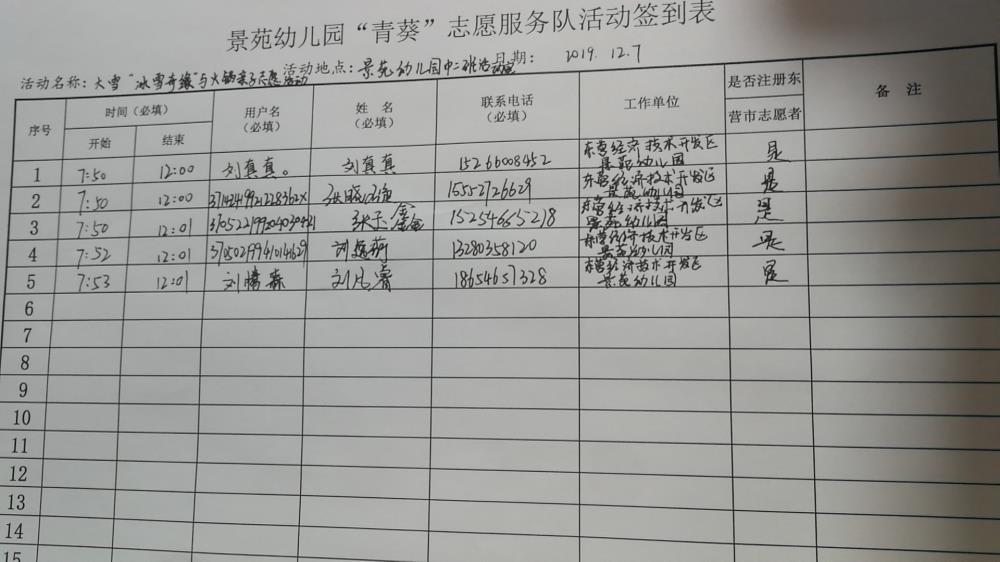 景苑幼儿园“青葵”志愿服务队活动签到表
活动名称：大雪“冰雪奇缘”与火锅亲子志愿活动 活动地点：景苑幼儿园中二班活动室 日期： 2019.12.7
序号 时间（必填） 开始 结束 用户名（必填） 姓 名（必填） 联系电话（必填） 工作单位 是否注册东营市志愿者 备 注
1 7:50 12:00 刘真真。 刘真真 15266008452 东营经济技术开发区景苑幼儿园 是
2 7:50 12:00 37142419921228362X 张晓 15552726629 东营经济技术开发区景苑幼儿园 是
3 7:50 12:01 张玉鑫 15254665218 东营经济技术开发区景苑幼儿园 是
4 7:52 12:01 370502199410164629 刘 13280358120 东营经济技术开发区景苑幼儿园 是
5 7:53 12:01 刘 刘 18654651328 东营经济技术开发区景苑幼儿园 是
6
7
8
9
10
11
12
13
14
15